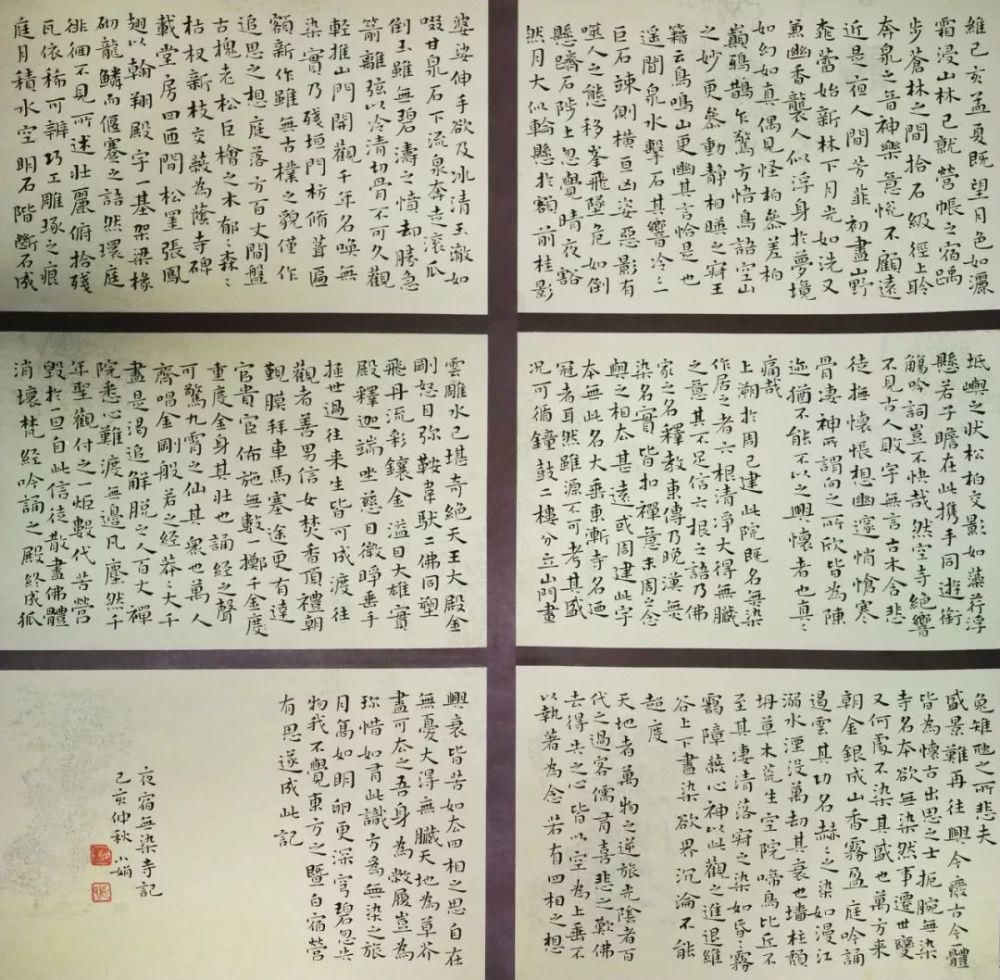 維己亥孟夏既望月色如灑
霜浸山林已就營帳之宿踽
步蒼林之間拾石級經上聆
奔泉之音神樂意恍不顧遠
近是夜人間芳菲初盡山野
蕾始新林下月光如洗又
兼幽香襲人似浮身於夢境
如幻如真偶見怪柏參差柏
巔鴉鵲乍驚方悟鳥語空山
之妙更參動靜相暎之寂王
籍云鳥鳴山更幽其言恰是也
遙聞泉水擊石其響冷々二
巨石竦側橫亘凶姿惡影有
噬人之態移峯飛墜危如倒
懸躋石階上忽覺晴夜豁
然月大似輪懸於額前桂影
婆娑伸手欲及冰清玉澈如
啜甘泉石下流泉奔走滾瓜
倒玉雖無碧濤之憤却勝急
箭離弦以冷清切骨不可久觀
輕推山門開觀千年名喚無
染實乃殘垣門枋脩葺匾
額新作雖無古樸之貌僅作
追思之想庭落方百丈間盤
古槐老松巨檜之木郁々森々
枯杈新枝交蔽為蔭寺碑
載堂房四匝間松罣張鳳
翅以翰翔殿宇一基架梁椽
砌龍鱗而偃蹇之語然環庭
徘徊不見所述壯麗俯拾殘
瓦依稀可辨巧工雕琢之痕
庭月積水空明石階斷石成
坻嶼之狀松柏交影如藻荇浮
懸若子瞻在此携手同遊銜
觴吟詞豈不快哉然空寺絕響
不見古人敗字無言古木含悲
徒撫懷悵想幽邃悄愴寒
骨凄神所謂向之所欣皆為陳
迹猶不能不以之興懷者也真々
痛哉
上溯於周已建此院既名無染
作居之者六根清淨大得無臟
之意其不足信六根之語乃佛
家之名釋教東傳乃晚漢無
染名實皆扣禪意末周之念
輿之相左甚遠或周建此宇
本無此名大乘東漸寺名迺
冠者耳然雖源不可考其盛
况可循鐘鼓二樓分立山門畫
雲雕水已堪奇絕天王大殿金
剛怒目弥鞍韋馱二佛同塑
飛丹流彩鑲金溢日大雄寶
殿釋迦端坐慈目微睜垂手
拯世過往来生皆可成渡往
觀者善男信女焚香頂禮朝
覲膜拜車馬塞途更有達
官貴宦佈施無數一擲千金慶
重度金身其壯也誦經之聲
可驚九霄之仙其眾也萬人
齊唱金剛般若之經莽々大千
盡是渴追解脫之人百丈禪
院悉心難渡無邊凡塵然千
年聖觀付之一炬數代苦營
毀於一旦自此信徒散盡佛體
消壞梵經吟誦之殿終成狐
兔雉虺之所悲夫
盛景難再往興今廢古今一體
皆為懷古出思之士扼腕無染
寺名本欲無染然事遷世變
又何處不染其盛也萬方来
朝金銀成山香霧盈庭吟誦
遏雲其功名赫々之染如漫江
溺水湮没萬劫其衰也墻柱頹
坍草木荒生空院啼鳥比丘不
至其凄清落寂之染如昏々霧
靄障蔽心神以此觀之進退維
谷上下盡染欲界沉淪不能
超度
天地者萬物之逆旅光陰者百
代之過客儒有喜悲之歎佛
去得失之心皆以空為上乘不
以執著為念若有四相之想
興衰皆苦如去四相之思自在
無憂大得無臟天地為草芥
盡可去之吾身為敝履豈為
珍惜如有此識方為無染之旅
月篤如明卯更深穹碧忽失
物我不覺東方之暨白宿營
有思遂成此記
夜宿無染寺記
己亥仲秋 小娟